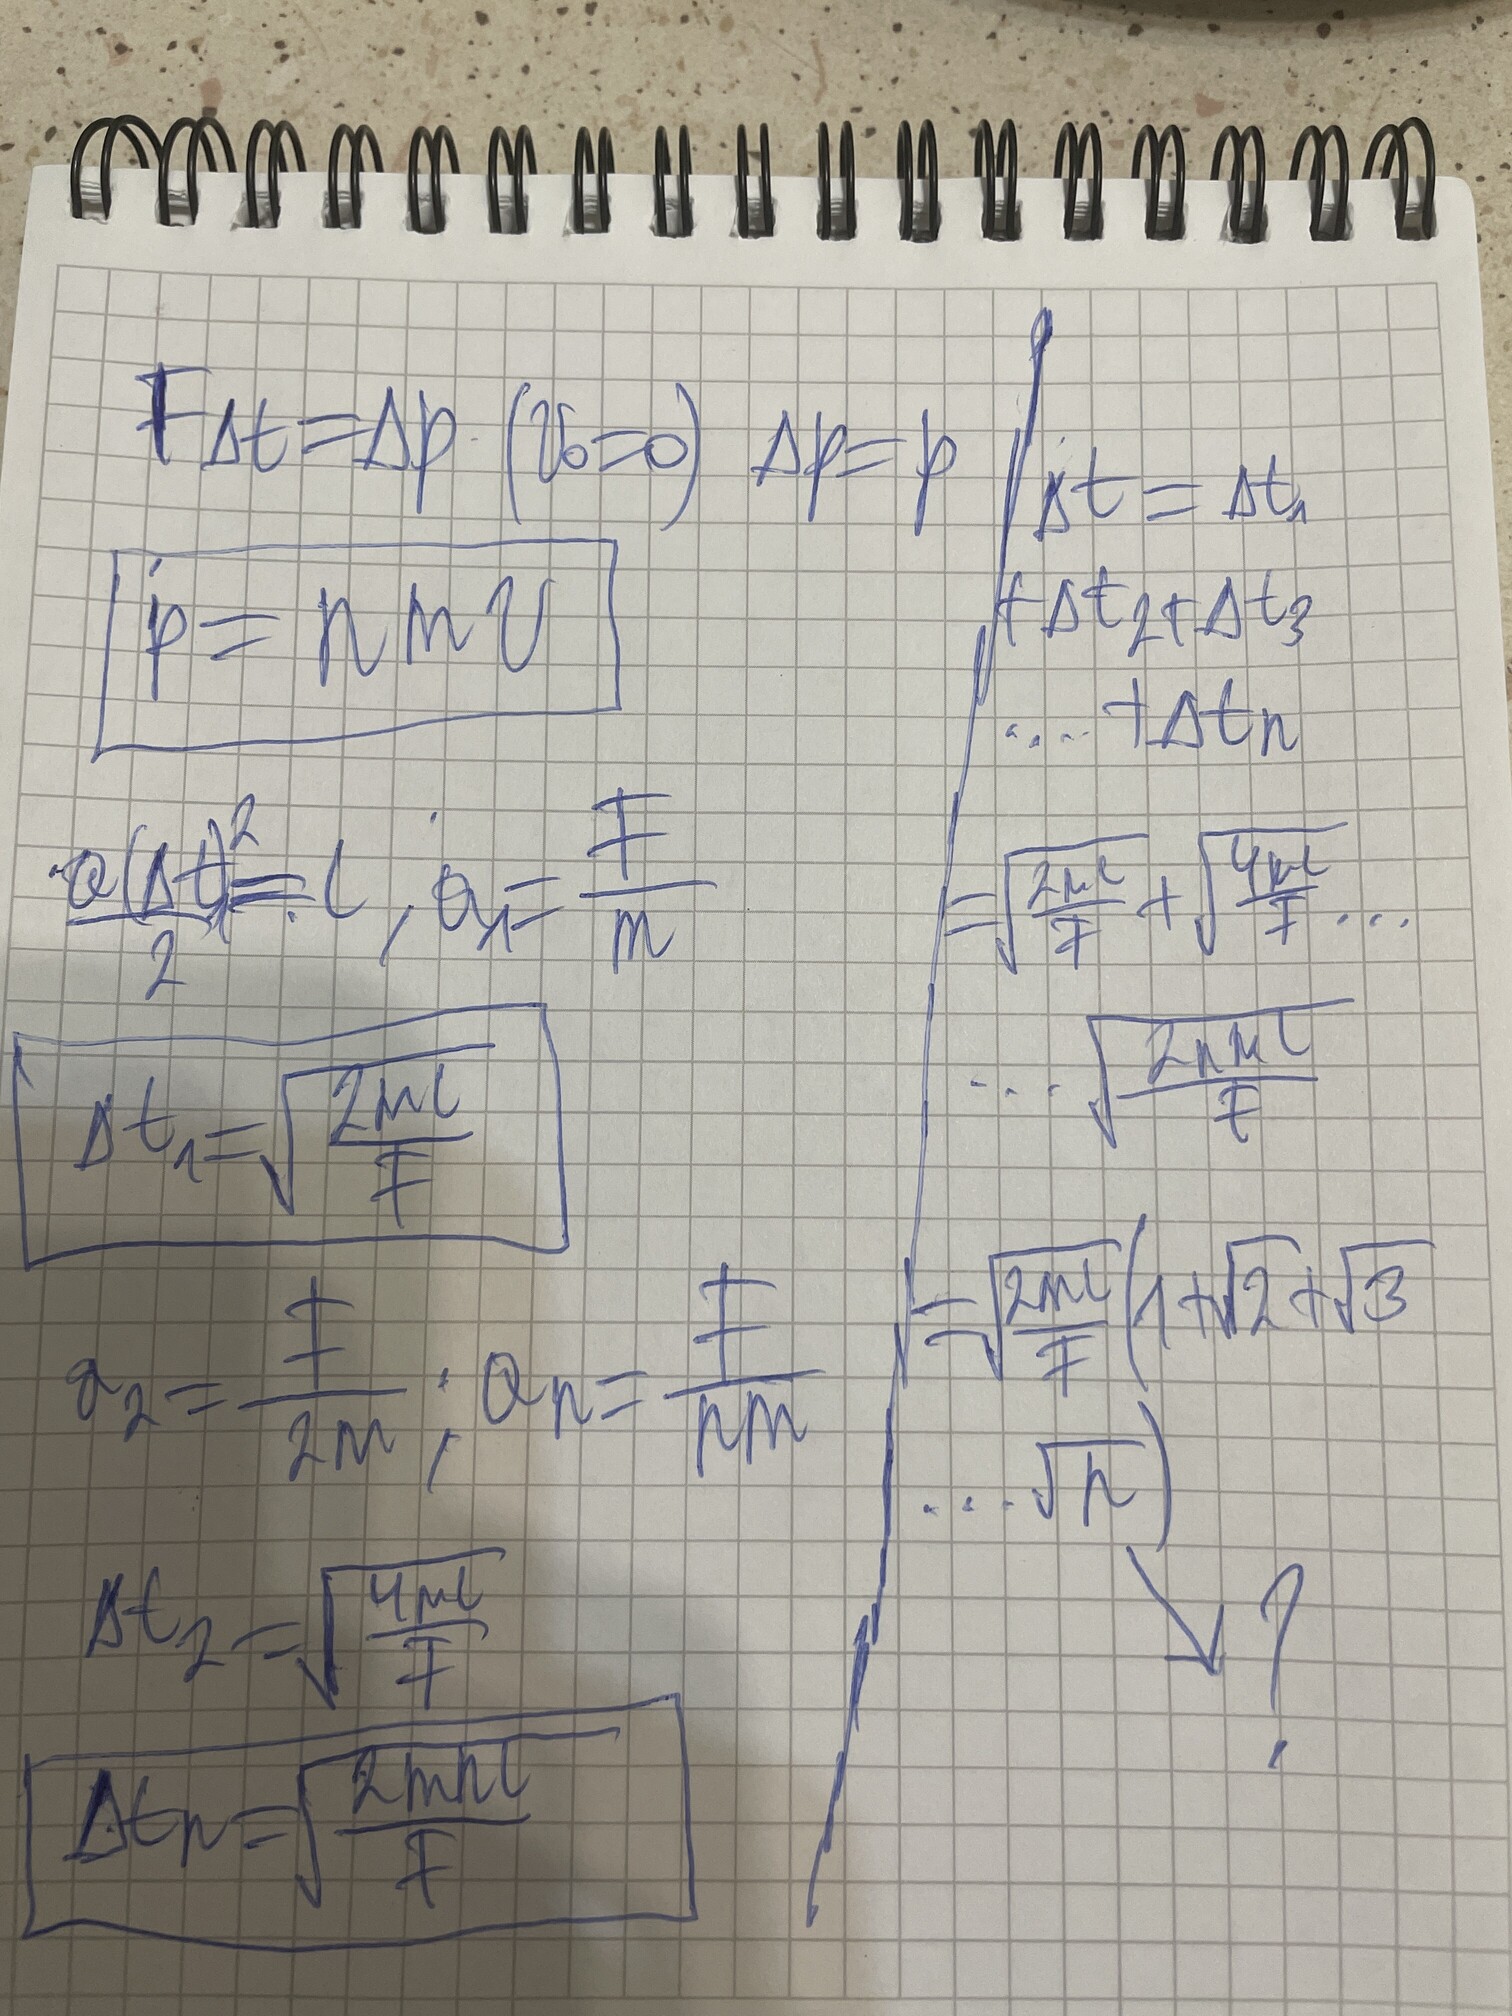 FΔt=Δp (v₀=0) Δp=p
p=nmv
a(Δt₁)²/2=l, a₁=F/m
Δt₁=√(2ml/F)
a₂=F/2m; aₙ=F/nm
Δt₂=√(4ml/F)
Δtₙ=√(2mnl/F)
Δt=Δt₁
+Δt₂+Δt₃
....+Δtₙ
=√(2ml/F)+√(4ml/F)...
...√(2nml/F)
=√(2ml/F)(1+√2+√3
....√n)
?